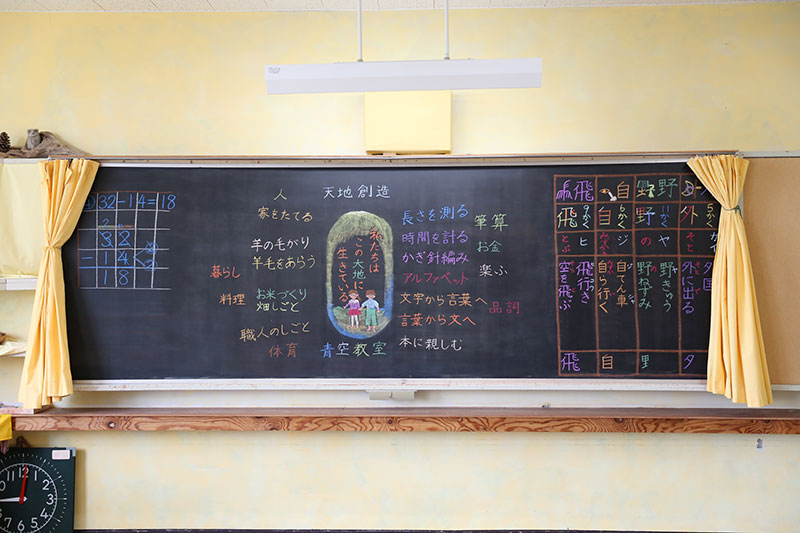 32-14=18
32
-14
18
人
家をたてる
羊の毛がり
羊毛をあらう
暮らし
料理
お米づくり
畑しごと
職人のしごと
体育
天地創造
私たちは
この大地に
生きている
青空教室
長さを測る
時間を計る
かぎ針編み
アルファベット
文字から言葉へ
言葉から文へ
本に親しむ
筆算
お金
楽ぶ
品詞
外
5かく
そと
夕
外に出る
夕
野
野
11かく
ヤ
の
野きゅう
野ねずみ
里
自
自
6かく
ジ
みずから
自てん車
自ら行く
自
飛
飛
9かく
ヒ
とぶ
飛行き
空を飛ぶ
飛
12
1
2
3
4
5
6
7